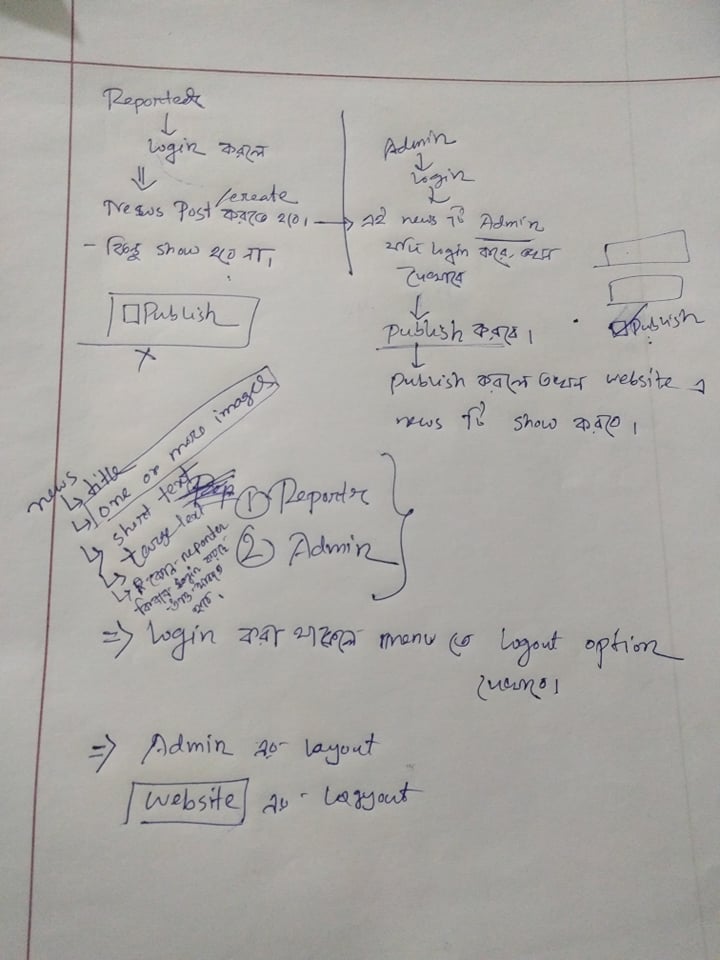 Reporter
↓
login করলে
⇓
News Post /create করতে হবে। →
- কিন্তু show হবে না।
☐ Publish
×
Admin
↓
login
↓
এই news টি Admin
যদি login করে, তখন
দেখাবে
↓
publish করবে।
↓
publish করলে তখন website এ
news টি show করবে।
Publish
news
↳ title
↳ one or more images
↳ short text
↳ large text
↳ reporter
login
① Reporter
② Admin
⇒ login করা থাকলে menu তে logout option
দেখাবে।
⇒ Admin এর layout
website এর layout